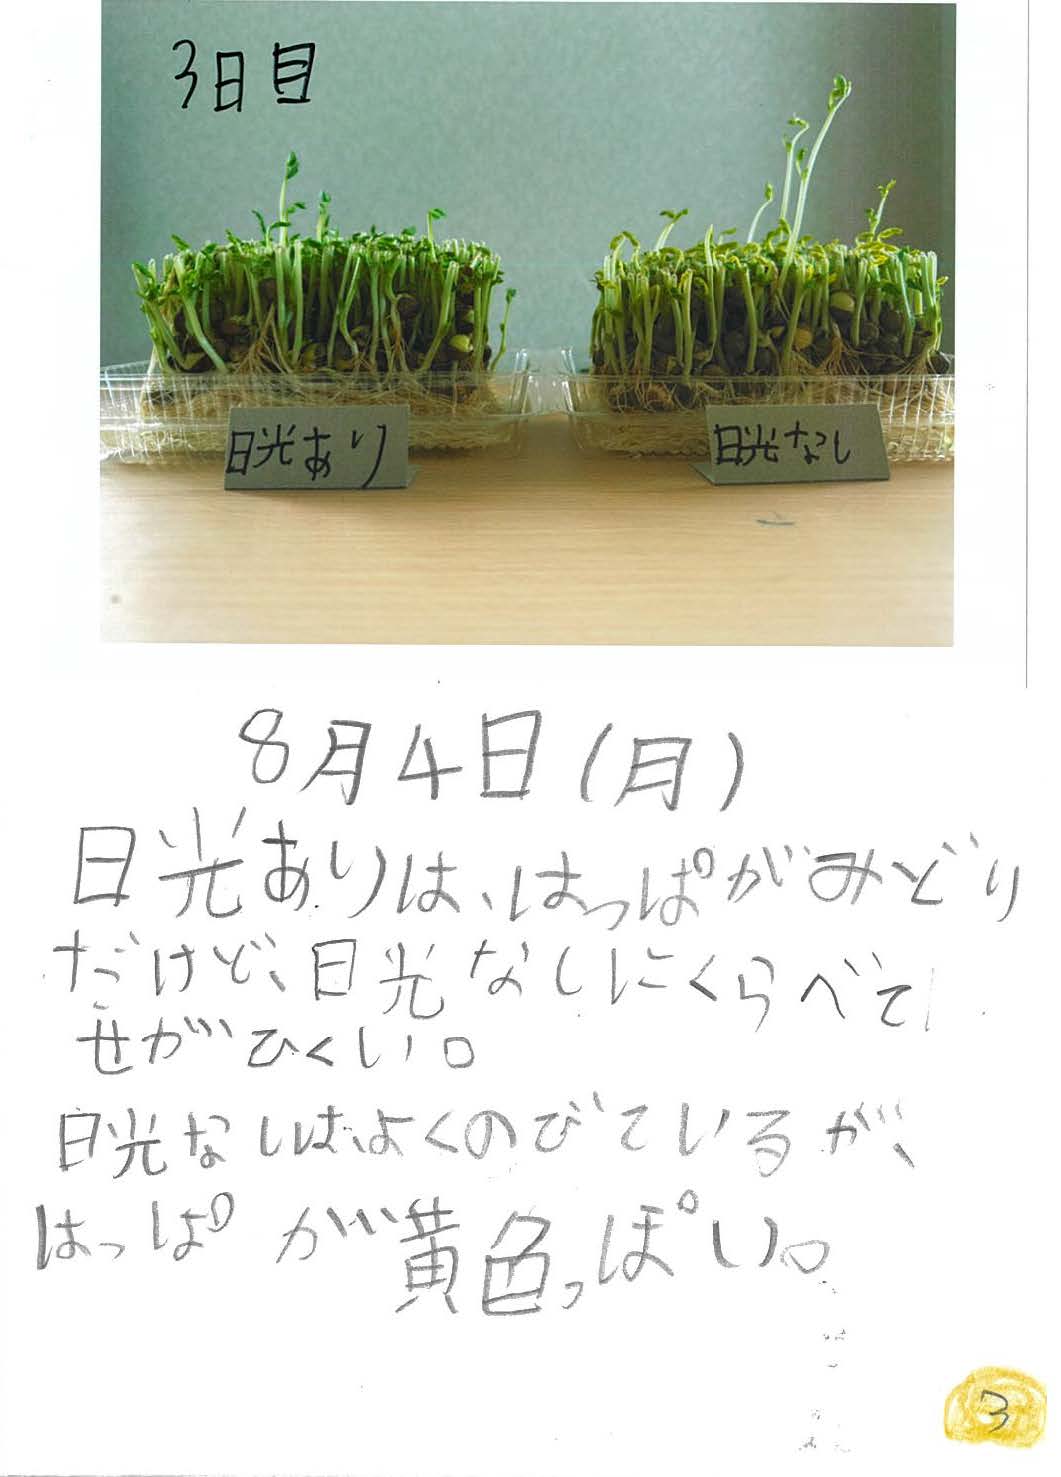 3日目
日光あり
日光なし
8月4日(月)
日光ありは、はっぱがみどり
だけど、日光なしにくらべて
せがひくい。
日光なしは、よくのびているが、
はっぱが黄色っぽい。
3